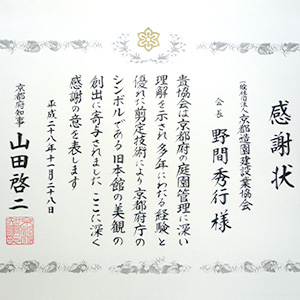 感謝状
一般社団法人京都造園建設業協会
会長 野間秀行様
貴協会は京都府の庭園管理に深い
理解を示され多年にわたる経験と
優れた剪定技術により京都府庁の
シンボルである旧本館の美観の
創出に寄与されました ここに深く
感謝の意を表します
平成二十八年十一月二十八日
京都府知事 山田啓二